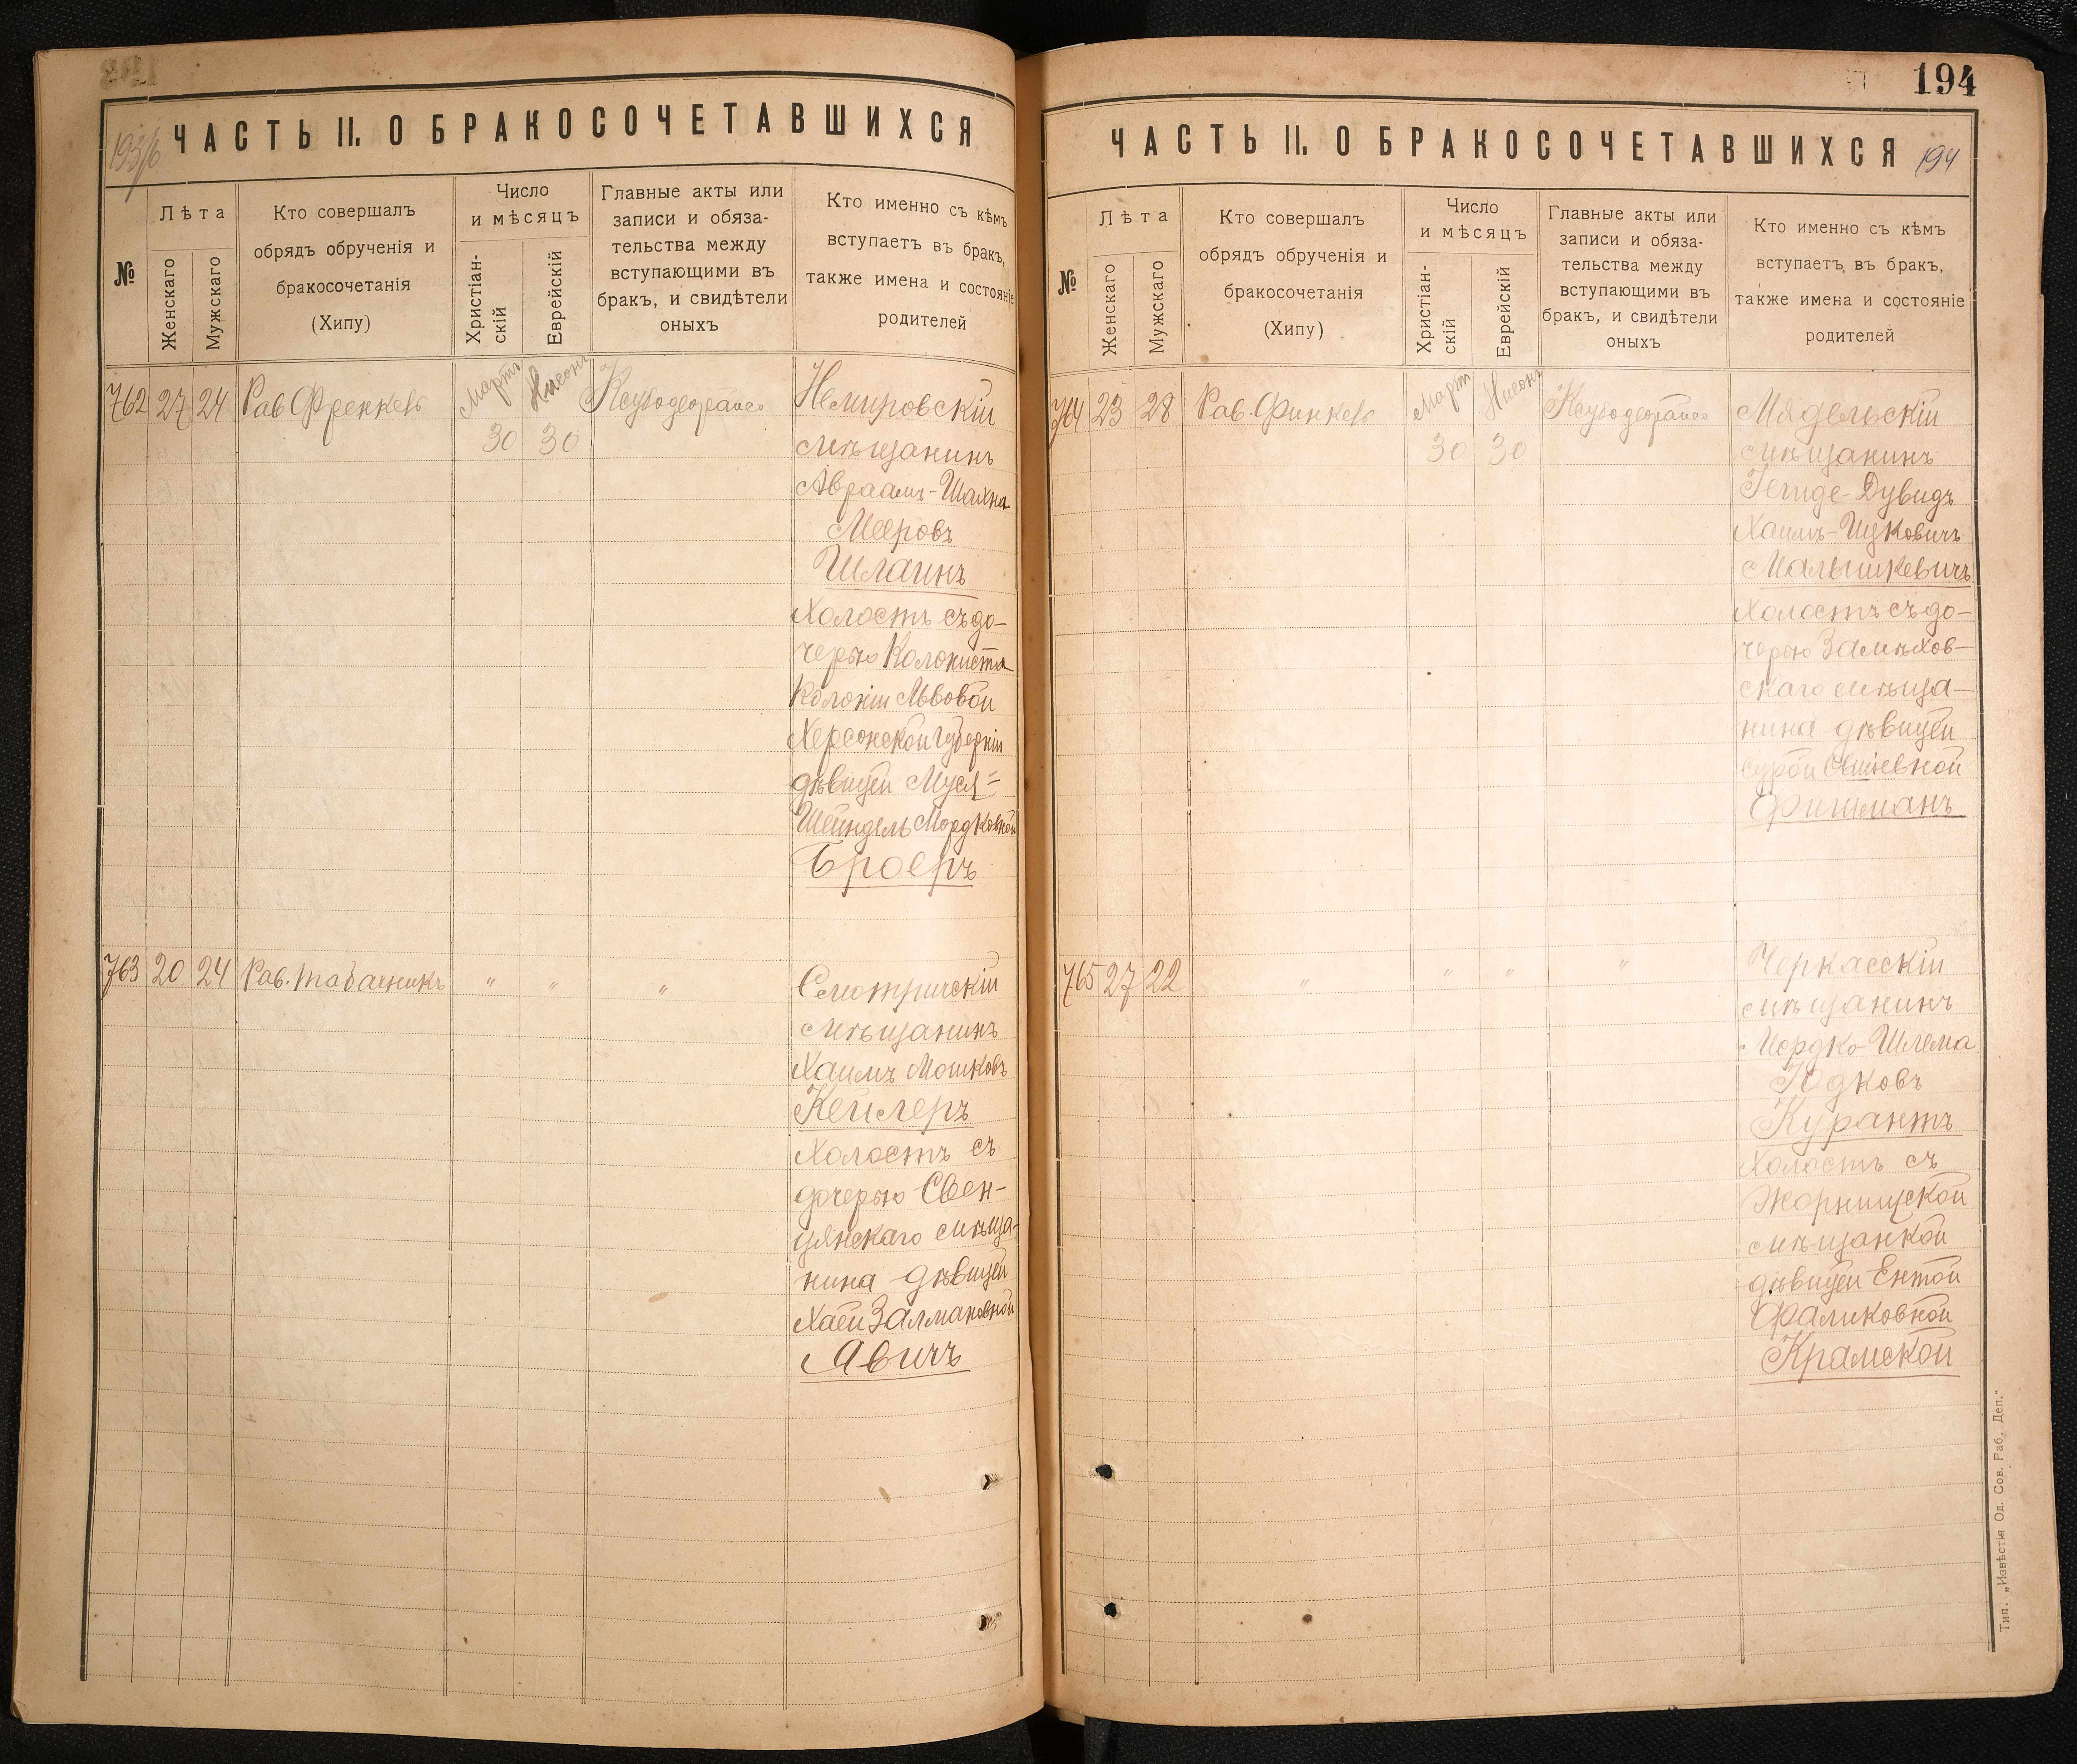 193/б
ЧАСТЬ II. О БРАКОСОЧЕТАВШИХСЯ
№
Лѣта
Женскаго
Мужскаго
Кто совершалъ
обрядъ обрученія и
бракосочетанія
(Хипу)
Число
и мѣсяцъ
Христіан-
скій
Еврейскій
Главные акты или
записи и обяза-
тельства между
вступающими въ
бракъ, и свидѣтели
оныхъ
Кто именно съ кѣмъ
вступаетъ въ бракъ,
также имена и состояніе
родителей
762 27 24 Рав Френкель Мартъ Нисонъ
30 30
Немировскій
мѣщанинъ
Авраамъ-Шахна
Мееровъ
Шлаинъ
холостъ съ до-
черью Колониста
Колоніи Львовой
Херсонской Губерніи
дѣвицей Муся=
Шейндель Мордковной
Броеръ
763 20 24 Рав. Табачникъ " " "
Смотричскій
мѣщанинъ
Хаимъ Мошковъ
Кейлеръ
холостъ съ
дочерью Свен-
цянскаго мѣща-
нина дѣвицей
Хаей Залмановной
Явичъ
194
ЧАСТЬ II. О БРАКОСОЧЕТАВШИХСЯ 194
№
Лѣта
Женскаго
Мужскаго
Кто совершалъ
обрядъ обрученія и
бракосочетанія
(Хипу)
Число
и мѣсяцъ
Христіан-
скій
Еврейскій
Главные акты или
записи и обяза-
тельства между
вступающими въ
бракъ, и свидѣтели
оныхъ
Кто именно съ кѣмъ
вступаетъ въ бракъ,
также имена и состояніе
родителей
764 23 28 Рав. Финкель Март Нисонъ
30 30
Мядельскій
мѣщанинъ
Дувидъ
Хаимъ-Ицковичъ
Малышкевичъ
холостъ съ до-
черью Замѣхов-
скаго мѣща-
нина дѣвицей
Сурой
Фишманъ
765 27 22 " " " "
Черкасскій
мѣщанинъ
Мордко-Шлема
Юдковъ
Курантъ
холостъ съ
Жорнищской
мѣщанкой
дѣвицей Ентой
Фаликовной
Крамской
Тип. „Извѣстія Од. Сов. Раб. Деп."